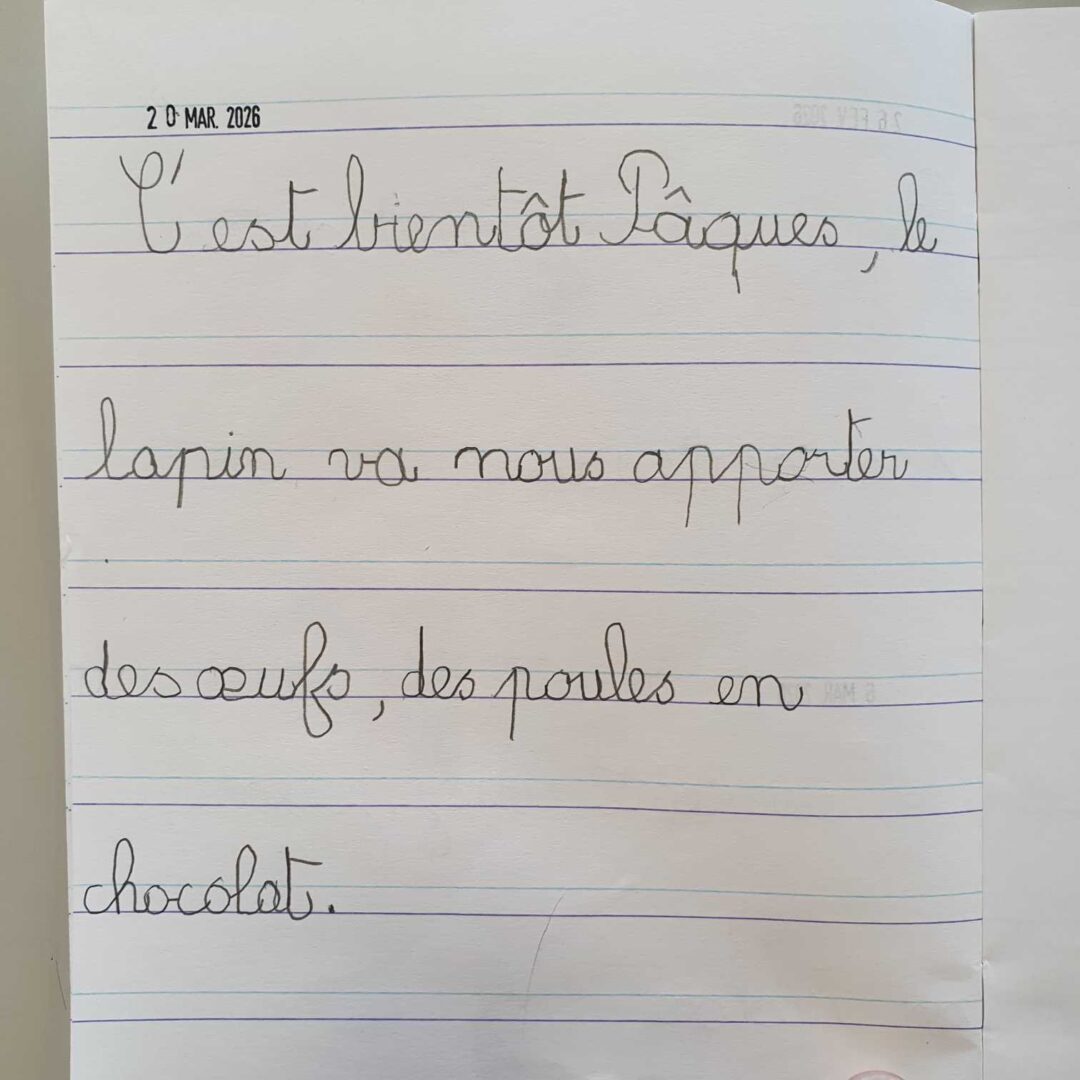 20 MAR. 2026
C'est bientôt Pâques, le
lapin va nous apporter
des œufs, des poules en
chocolat.